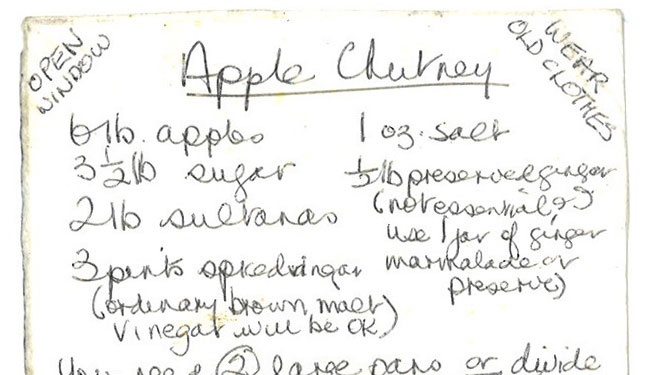 OPEN
WINDOW
WEAR
OLD CLOTHES
Apple Chutney
6lb. apples
3½lb sugar
2lb sultanas
3 pints spicedvingar
(ordinary brown, malt
vinegar will be OK)
1 oz. salt
½lb preservedginger
(not essential or
use 1 jar of ginger
marmalade or
preserve)
You need ② large pans or divide